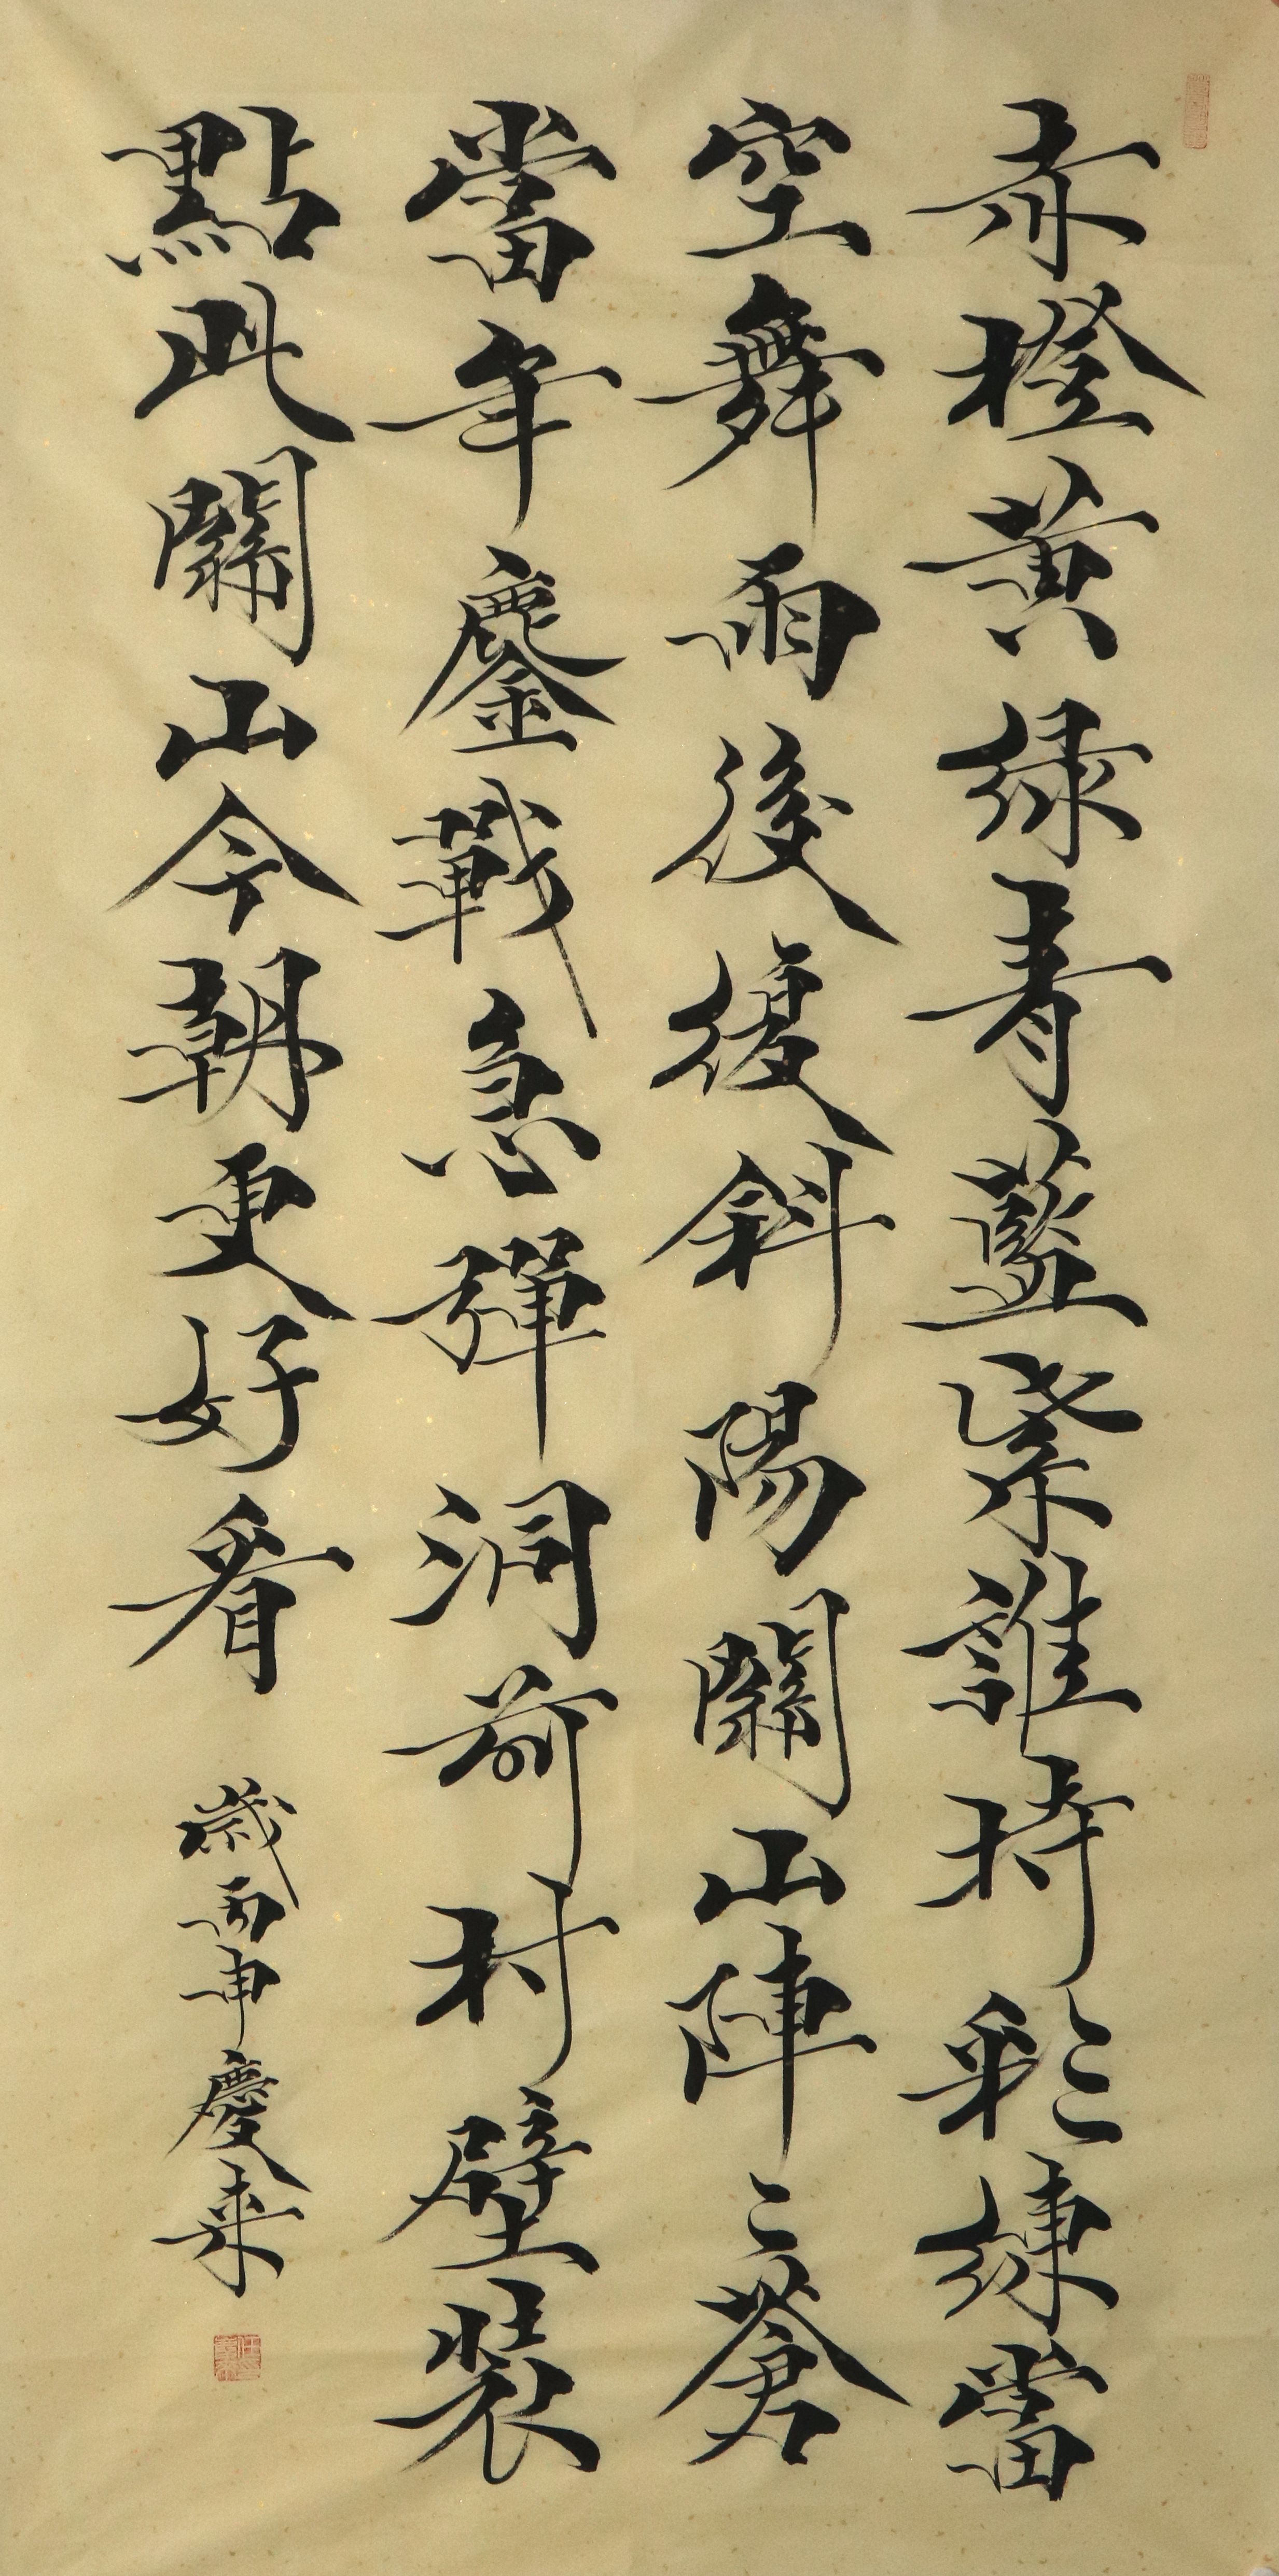 赤橙黄緑青藍紫誰持彩練當
空舞雨後復斜陽關山陣〻蒼
當年鏖戰急彈洞前村壁裝
點此關山今朝更好看
歲丙申慶来